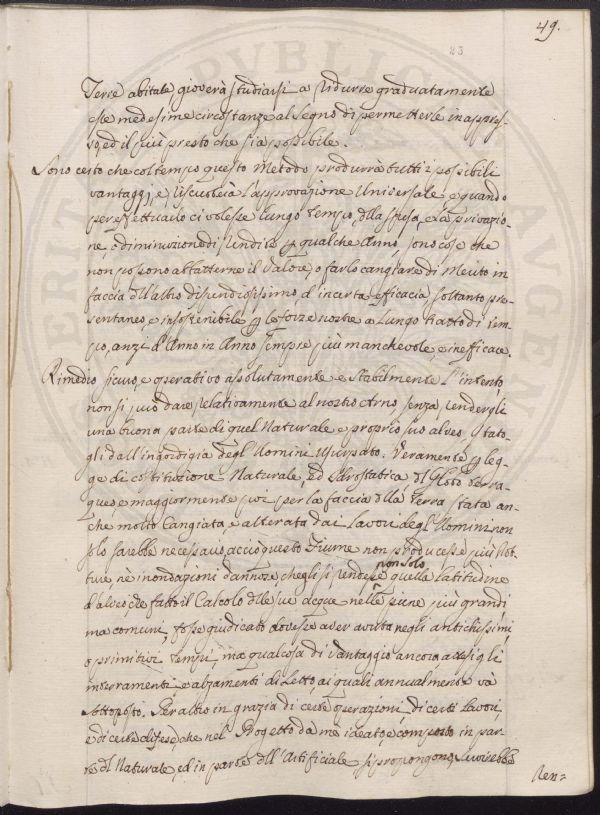 49.
23
Terre abitate gioverà studiarsi a ridurre graduatamente
esse medesime circostanze al segno di permetterle in appres-
so, ed il più presto che sia possibile.
Sono certo che col tempo questo Metodo produrrà tutti i possibili
vantaggj, e riscuoterà l'approvazione Universale, e quando
per effettuarlo ci volesse lungo tempo, della spesa, e la privazio-
ne, o diminuzione di rendite p qualche Anno, sono cose che
non possono abbatterne il valore, o farlo cangiare di Merito in
faccia dell'altro dispendiosissimo, d'incerta efficacia, soltanto pre-
sentaneo, e insostenibile p le forze nostre a lungo tratto di tem-
po, anzi d'Anno in Anno sempre più manchevole, e inefficace.
Rimedio sicuro, e operativo assolutamente e stabilmente l'intento,
non si può dare relativamente al nostro Arno senza rendergli
una buona parte di quel Naturale e proprio suo alveo, stato-
gli dall'ingordigia degl'Uomini usurpato. Veramente p leg-
ge di costituzione Naturale, ed Idrostatica del Globo Terra-
queo, e maggiormente poi per la faccia della Terra stata an-
che molto Cangiata, e alterata dai lavori degl'Uomini non
solo sarebbe necessario, acciò questo Fiume non producesse più Rot-
ture, nè inondazioni dannose, che gli si rendesse non solo quella latitudine
d'alveo che fatto il Calcolo delle sue acque nelle piene più grandi
ma comuni, fosse giudicato dovesse aver avuta negli antichissimi,
o primitivi tempi, ma qualcosa di vantaggio ancora attesi gli
interramenti, e alzamenti di Letto, ai quali annualmente và
sottoposto. Per altro in grazia di certe operazioni, di certi lavori,
e di certe difese, che nel Progetto da me ideato, e composto in par-
te del Naturale, ed in parte dell'Artificiale si propongono,
Ren=